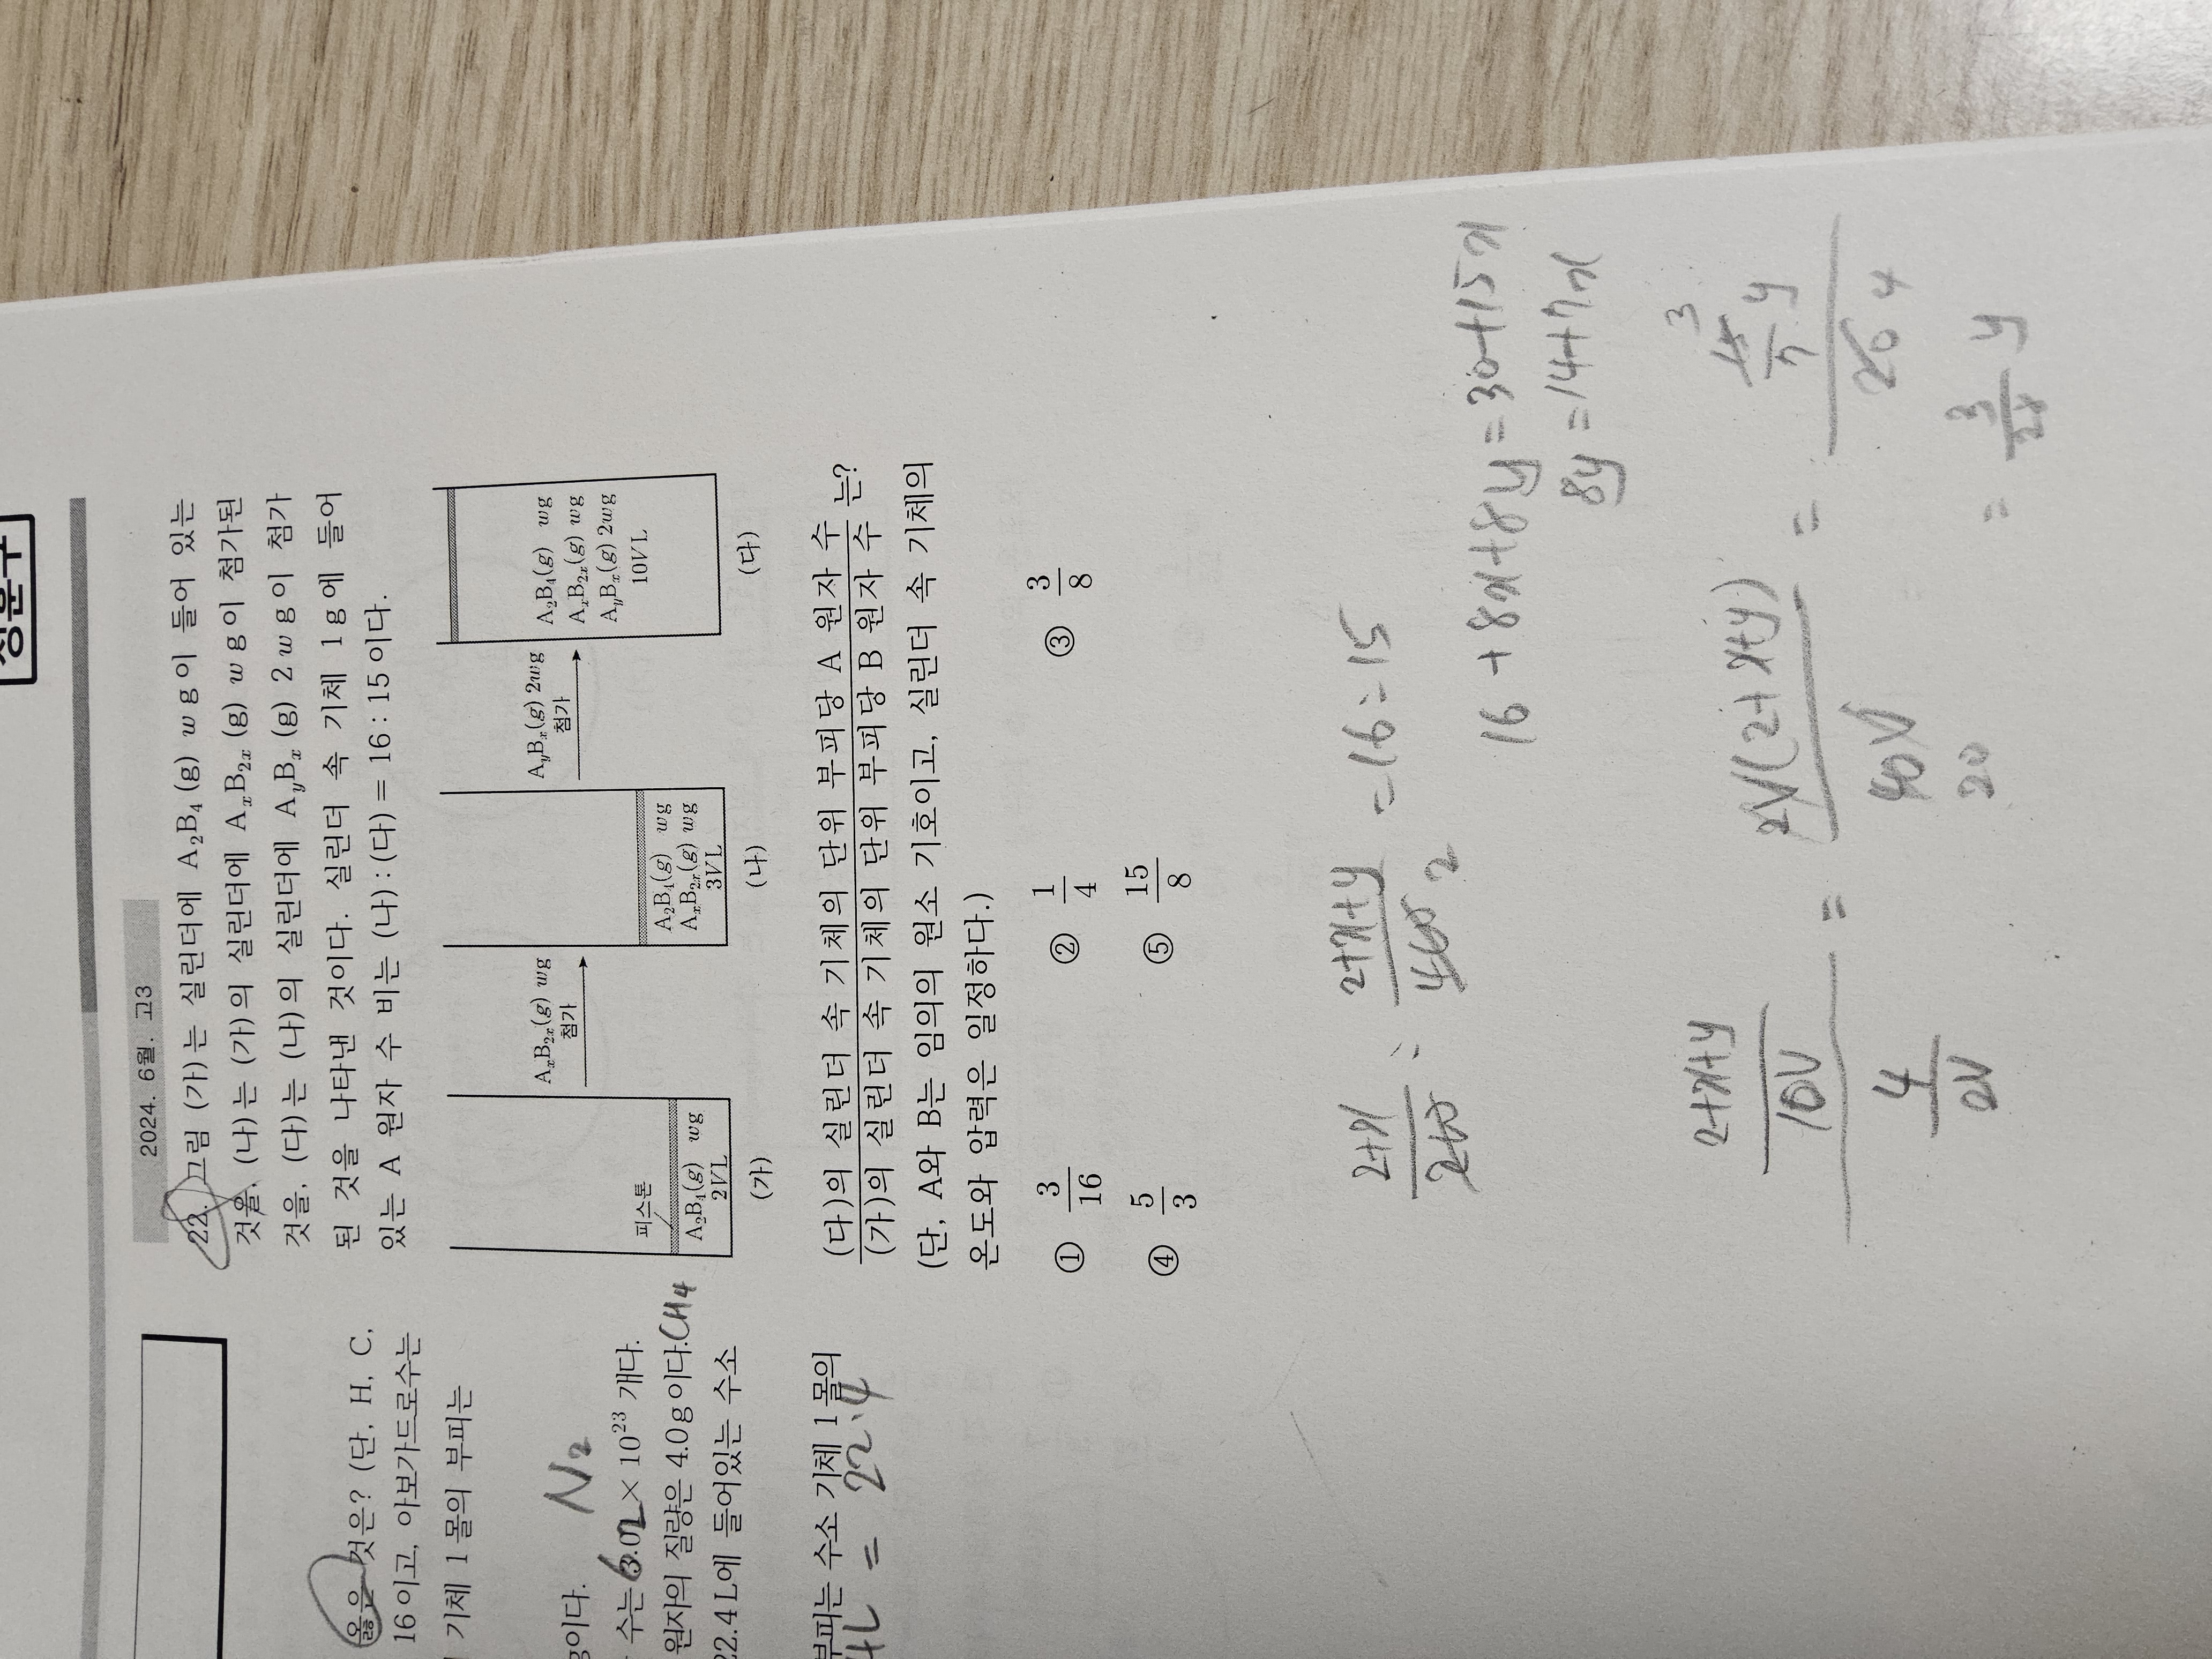 2024. 6월. 고3
22. 그림 (가)는 실린더에 A₂B₄(g) w g이 들어 있는
것을, (나)는 (가)의 실린더에 AₓB₂ₓ(g) w g이 첨가된
것을, (다)는 (나)의 실린더에 AᵧBₓ(g) 2w g이 첨가
된 것을 나타낸 것이다. 실린더 속 기체 1g에 들어
있는 A 원자 수 비는 (나) : (다) = 16 : 15이다.
피스톤
A₂B₄(g) wg
2V L
(가)
AₓB₂ₓ(g) wg
첨가
A₂B₄(g) wg
AₓB₂ₓ(g) wg
3V L
(나)
AᵧBₓ(g) 2wg
첨가
A₂B₄(g) wg
AₓB₂ₓ(g) wg
AᵧBₓ(g) 2wg
10V L
(다)
(다)의 실린더 속 기체의 단위 부피당 A 원자 수
(가)의 실린더 속 기체의 단위 부피당 B 원자 수 는?
(단, A와 B는 임의의 원소 기호이고, 실린더 속 기체의
온도와 압력은 일정하다.)
① 3/16 ② 1/4 ③ 3/8
④ 5/3 ⑤ 15/8
= 16 : 15
16 + 8x + 8y = 30 + 15x
8y = 14 + 7x
옳은 것은? (단, H, C,
16이고, 아보가드로수는
기체 1몰의 부피는
g이다. N₂
수는 6.02 × 10²³ 개다.
원자의 질량은 4.0g이다. CH₄
22.4L에 들어있는 수소
부피는 수소 기체 1몰의
4L = 22.4